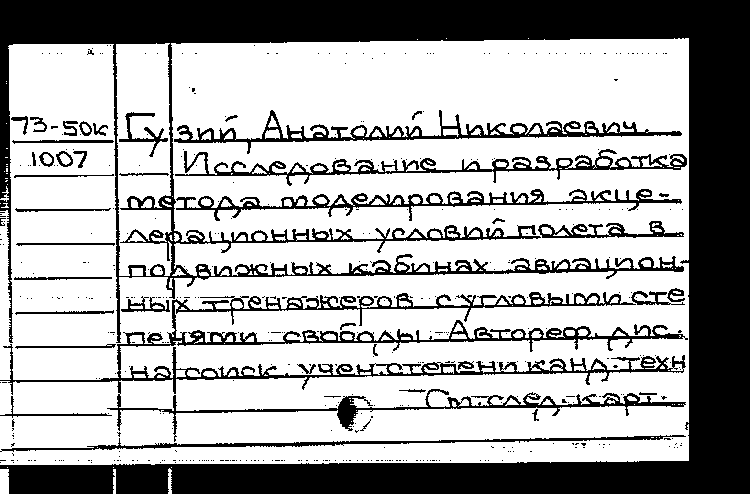 73-50к Гузий, Анатолий Николаевич.
1007 Исследование и разработка
метода моделирования акце-
лерационных условий полета в
подвижных кабинах авиацион-
ных тренажеров с угловыми сте
пенями свободы. Автореф. дис.
на соиск. учен. степени канд. техн
См. след. карт.